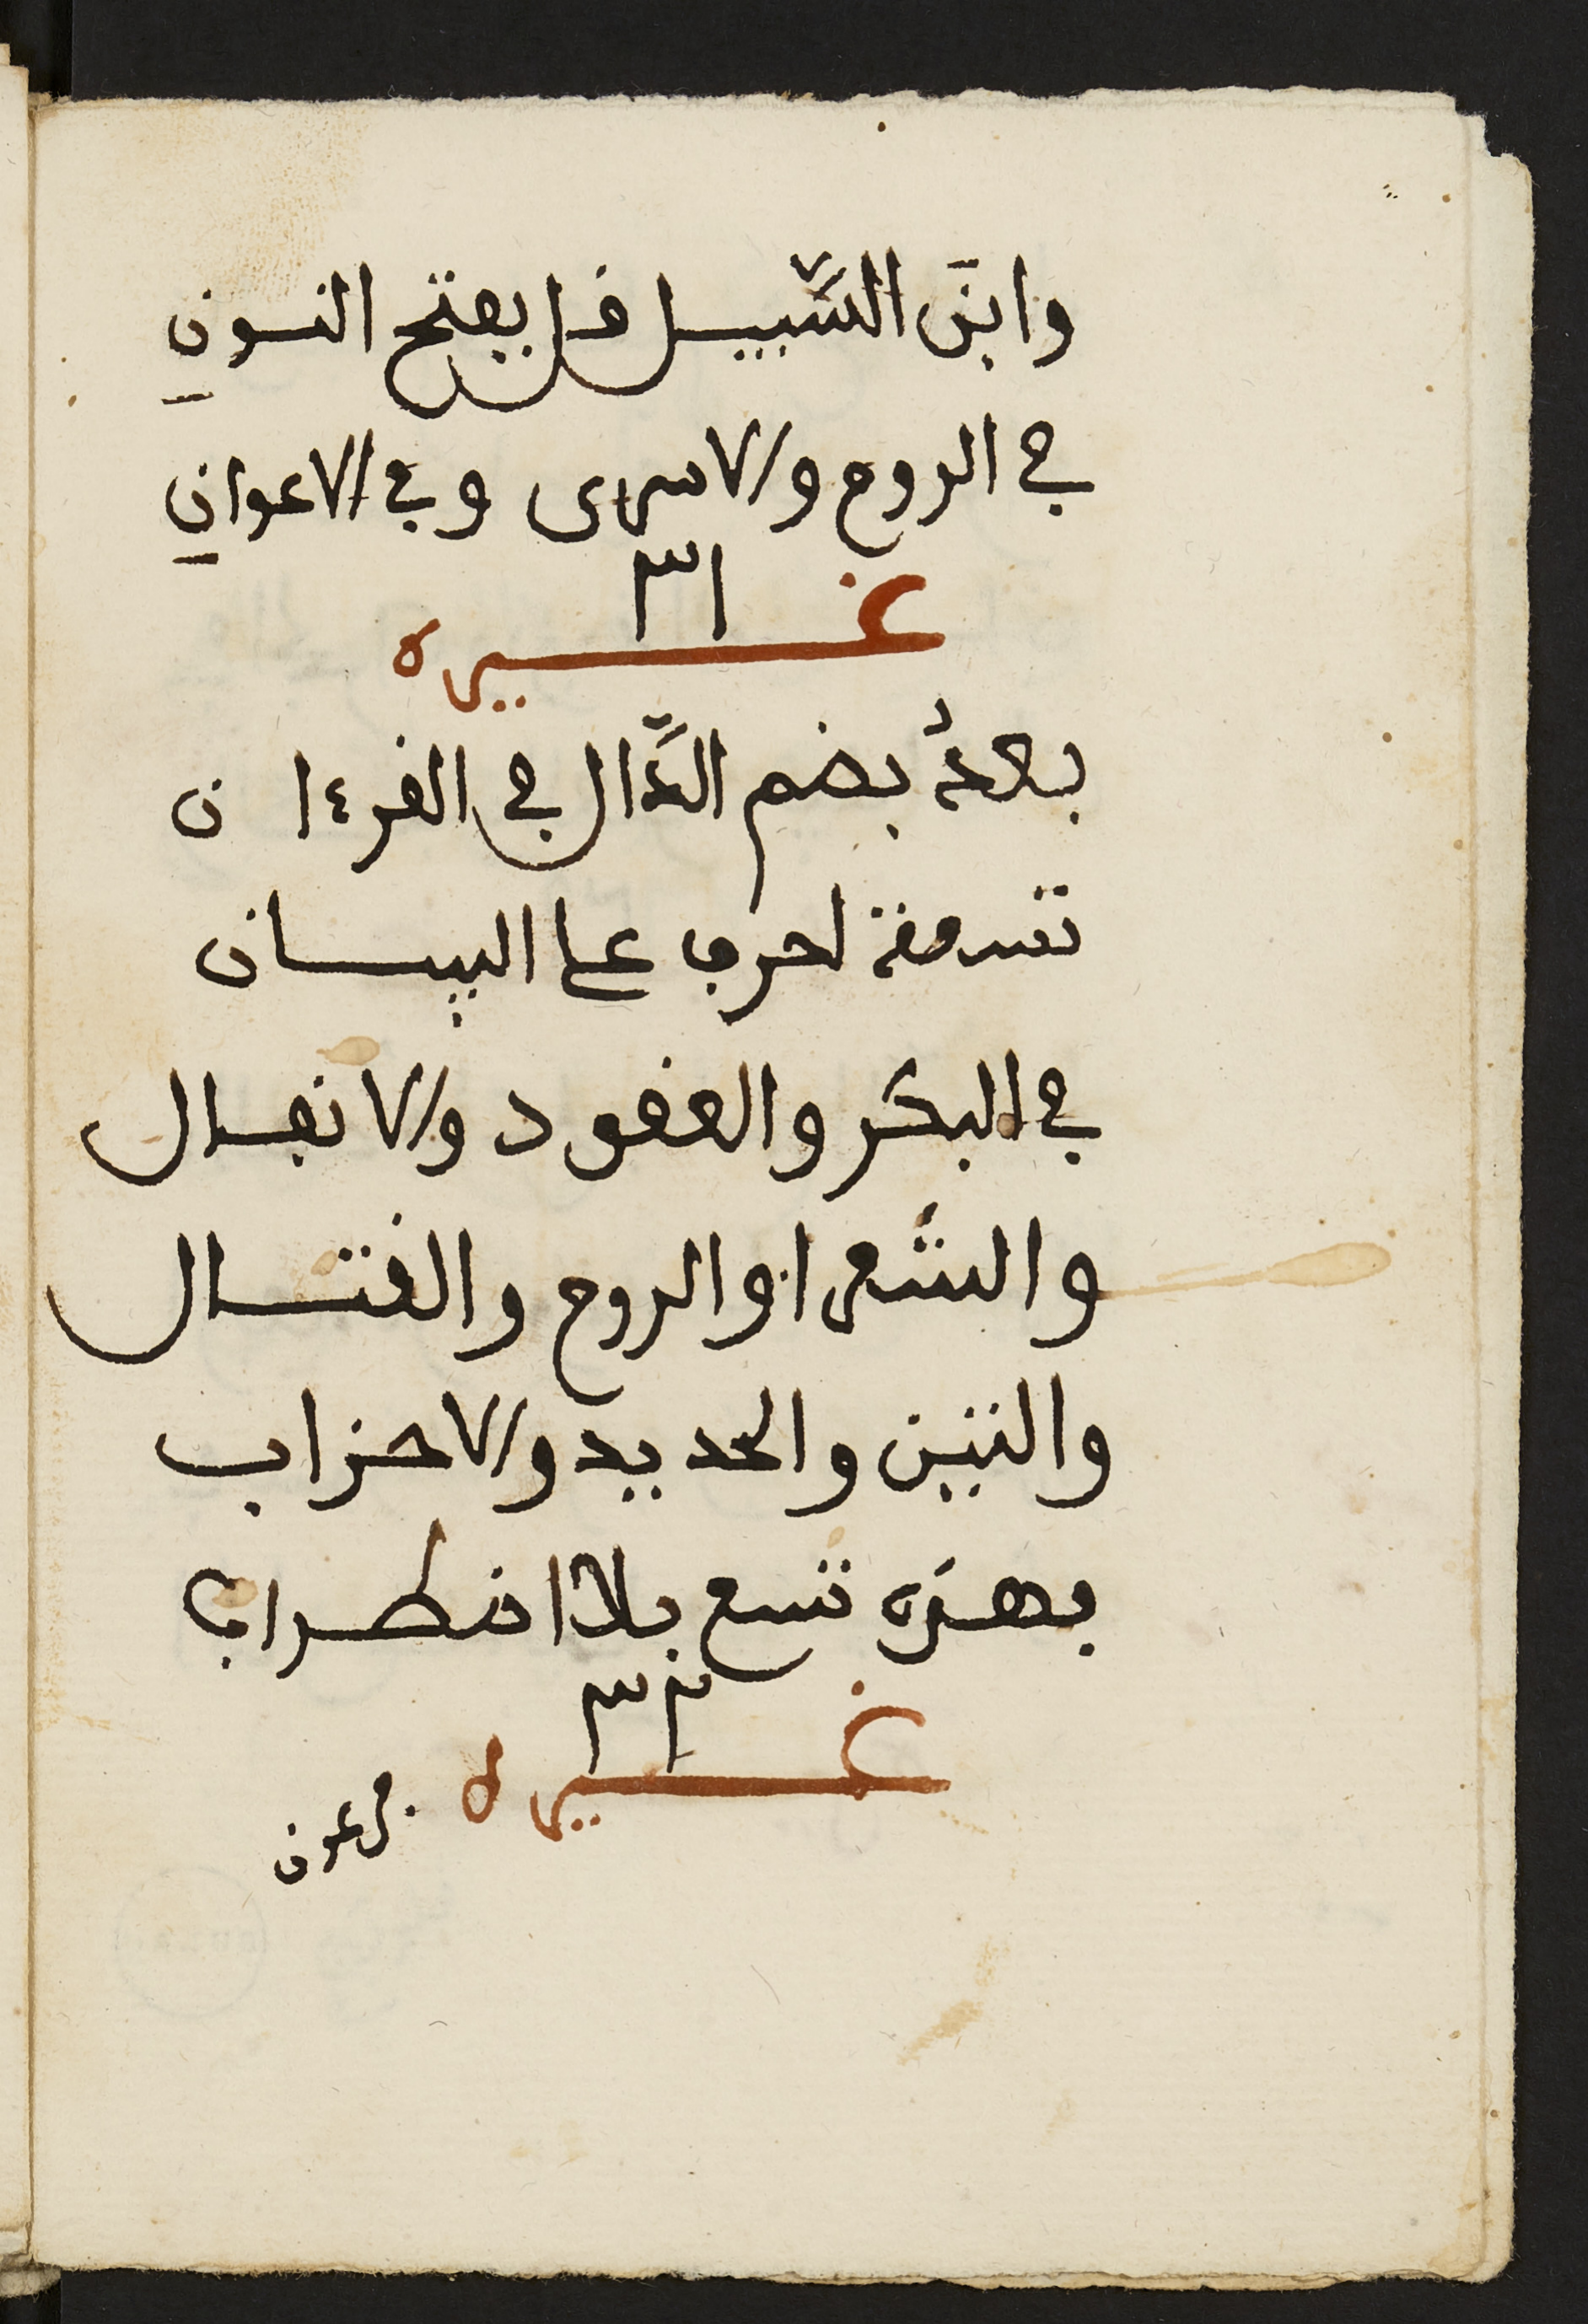 وابنَ السَّبيل قل بفتح النون
في الروم والاسرى وفي الاعوان
٣١
غيره
بعدُ بضم الدَّال في القرءان
تسعة احرف على البيان
في البكر والعقود والانفال
والشعرا والروم والقتال
والتين والحديد والاحزاب
بهذه تسع بلا اضطراب
٣٢
غيره
فرعون